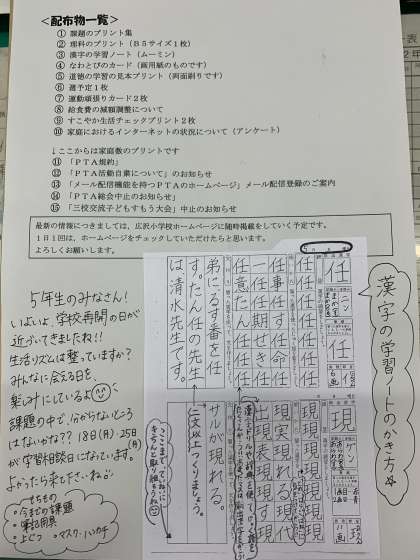 <配布物一覧>
① 課題のプリント集
② 理科のプリント（Ｂ５サイズ１枚）
③ 漢字の学習ノート（ムーミン）
④ なわとびのカード（画用紙のものです）
⑤ 道徳の学習の見本プリント（両面刷りです）
⑥ 週予定１枚
⑦ 運動頑張りカード２枚
⑧ 給食費の減額調整について
⑨ すこやか生活チェックプリント２枚
⑩ 家庭におけるインターネットの状況について（アンケート）
↓ここからは家庭数のプリントです
⑪ 「ＰＴＡ規約」
⑫ 「ＰＴＡ活動自粛について」のお知らせ
⑬ 「メール配信機能を持つＰＴＡのホームページ」メール配信登録のご案内
⑭ 「ＰＴＡ総会中止のお知らせ」
⑮ 「三校交流子どもすもう大会」中止のお知らせ
最新の情報につきましては、広沢小学校ホームページに随時掲載をしていく予定です。
１日１回は、ホームページをチェックしていただけたらと思います。
よろしくお願いします。
漢字の学習ノートのかき方
任
ニン
任
任任任任任任
任事任す任命任
一任任期せき任
任意たん任任任
弟に、るす番を任
す。たん任の先生
は清水先生です。
現
現現現現現現
現実現れる現代
出現表現現す現
サルが現れる。
二文以上つくりましょう。
ここまで、ていねいに
きちんと取り組もうね
5年生のみなさん!
いよいよ、学校再開の日が
近づいてきましたね!!
生活リズムは整っていますか?
みんなに会える日を、
楽しみにしているよ
課題の中で、分からないところ
はないかな?? 18日(月)・25日(月)
が学習相談日になっています。
よかったら来て下さいね♪
もちもの
・今までの課題
・筆記用具
・上ぐつ ・マスク・ハンカチ